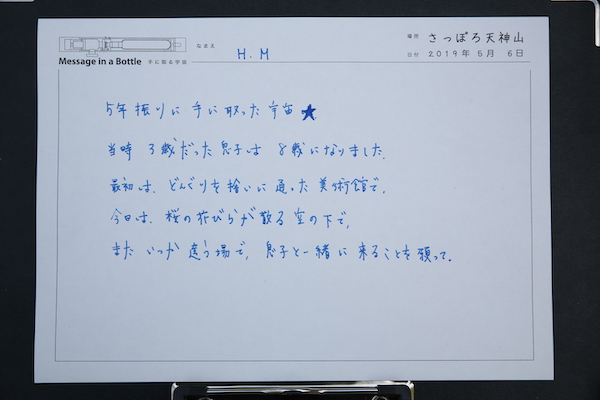 なまえ H.M
場所 さっぽろ天神山
Message in a Bottle 手に取る宇宙
日付 2019年 5月 6日
5年振りに手に取った宇宙★
当時 3歳だった息子は 8歳になりました.
最初は、どんぐりを拾いに通った美術館で,
今日は、桜の花びらが散る空の下で,
また いつか違う場で, 息子と一緒に来ることを願って.